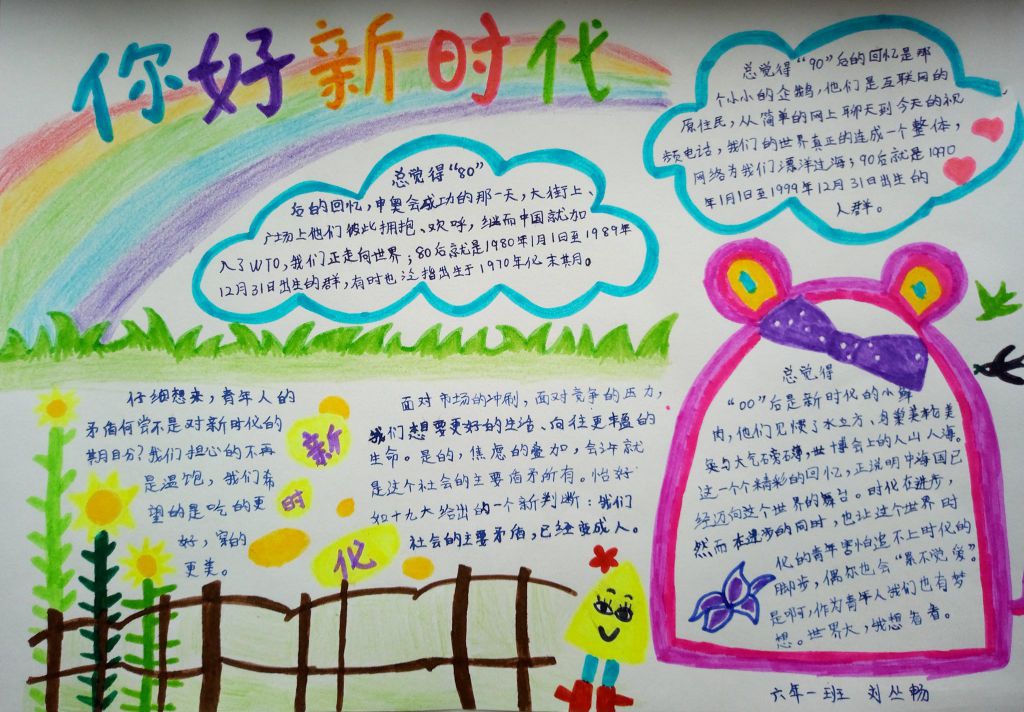 你好新时代
总觉得“80”
后的回忆，申奥会成功的那一天，大街上、
广场上他们彼此拥抱、欢呼，继而中国就加
入了WTO，我们正走向世界；80后就是1980年1月1日至1989年
12月31日出生的群，有时也泛指出生于1970年代末其月。
总觉得“90”后的回忆是那
个小小的企鹅，他们是互联网的
原住民，从简单的网上聊天到今天的视
频电话，我们的世界真正的连成一个整体，
网络为我们漂洋过海；90后就是1990
年1月1日至1999年12月31日出生的
人群。
仔细想来，青年人的
矛盾何尝不是对新时代的
期盼？我们担心的不再
是温饱，我们希
望的是吃的更
好，穿的
更美。
新
时
代
面对市场的冲刷，面对竞争的压力，
我们想要更好的生活、向往更丰盈的
生命。是的，焦虑的叠加，会许就
是这个社会的主要盾矛所有。恰好
如十九大给出的一个新判断：我们
社会的主要矛盾，已经变成人。
总觉得
“00”后是新时代的小鲜
肉，他们见惯了水立方、鸟巢
与大气磅礴，世博会上的人山人海。
这一个个精彩的回忆，正说明中海国已
经迈向这个世界的舞台。时代在进步，
然而在进步的同时，也让这个世界时
代的青年害怕追不上时代的
脚步，偶尔也会“累不觉爱”。
是啊，作为青年人我们也有梦
想。世界大，我想看看。
六年一班 刘丛畅